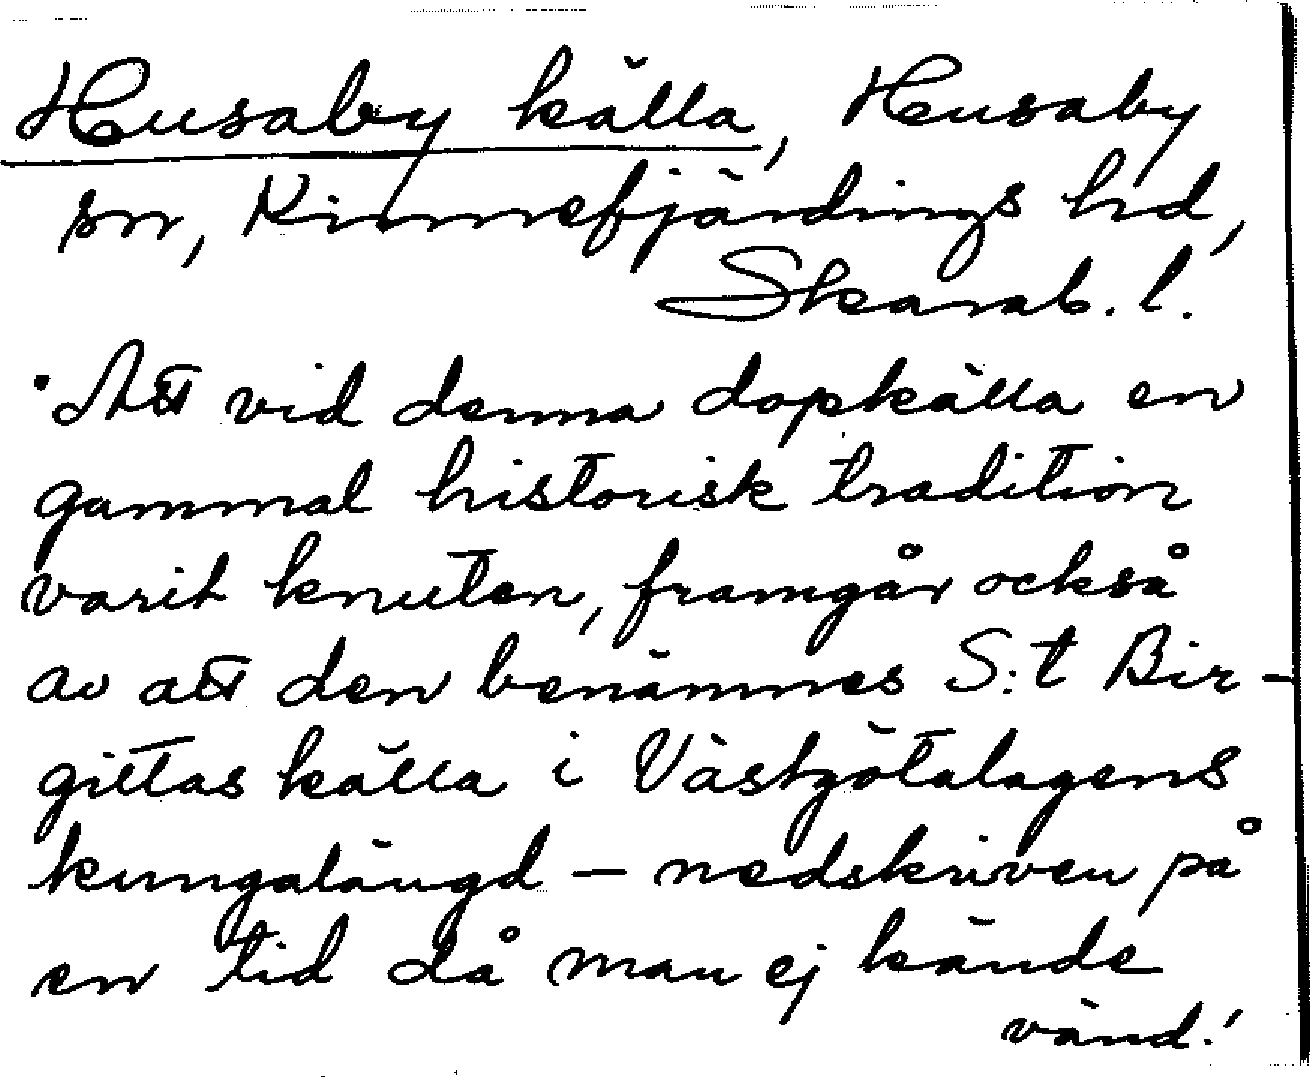 Husaby källa, Husaby
sn, Kinnefjärdings hd,
Skarab. l.
"Att vid denna dopkälla en
gammal historisk tradition
varit knuten, framgår också
av att den benämnes S:t Bir-
gittas källa i Västgötalagens
kungalängd — nedskriven på
en tid då man ej kände
vänd!